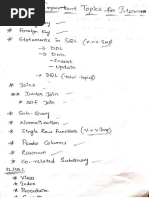 Important Topics for Interview
Key
* Foreign Key
* Statements in SQL (v.v.v.Imp)
→ DDL
→ DML
→ Insert
→ Update
→ DQL (total-topic)
* Joins
* Inner Join
* Self Join
* Sub-Query
* Normalization
* Single Row Functions (v.v.v Imp)
* Pseudo Columns
* Rownum
* Co-related Subquery
PL/SQL
* View
* Index
* Procedure